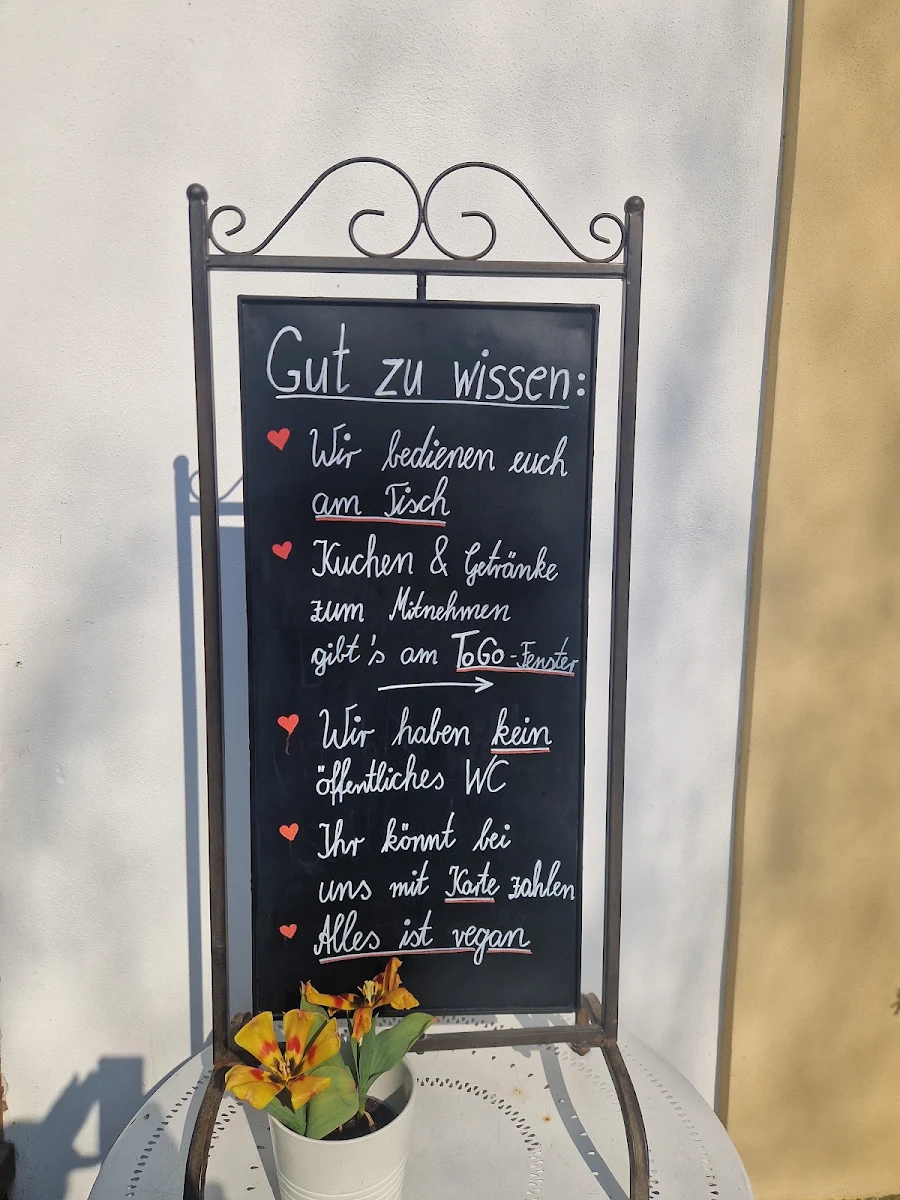 Gut zu wissen:
Wir bedienen euch
am Tisch
Kuchen & Getränke
zum Mitnehmen
gibt's am ToGo-Fenster
Wir haben kein
öffentliches WC
Ihr könnt bei
uns mit Karte zahlen
Alles ist vegan